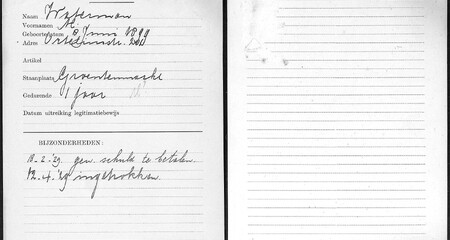 Naam Waterman
Voornamen M.
Geboortedatum 8 Juni 1899
Adres
Artikel
Staanplaats Groentenmarkt
Gedurende 1 jaar
Datum uitreiking legitimatiebewijs
BIJZONDERHEDEN:
18-2-'29 gen. schuld te betalen.
12-4-'29 ingetrokken